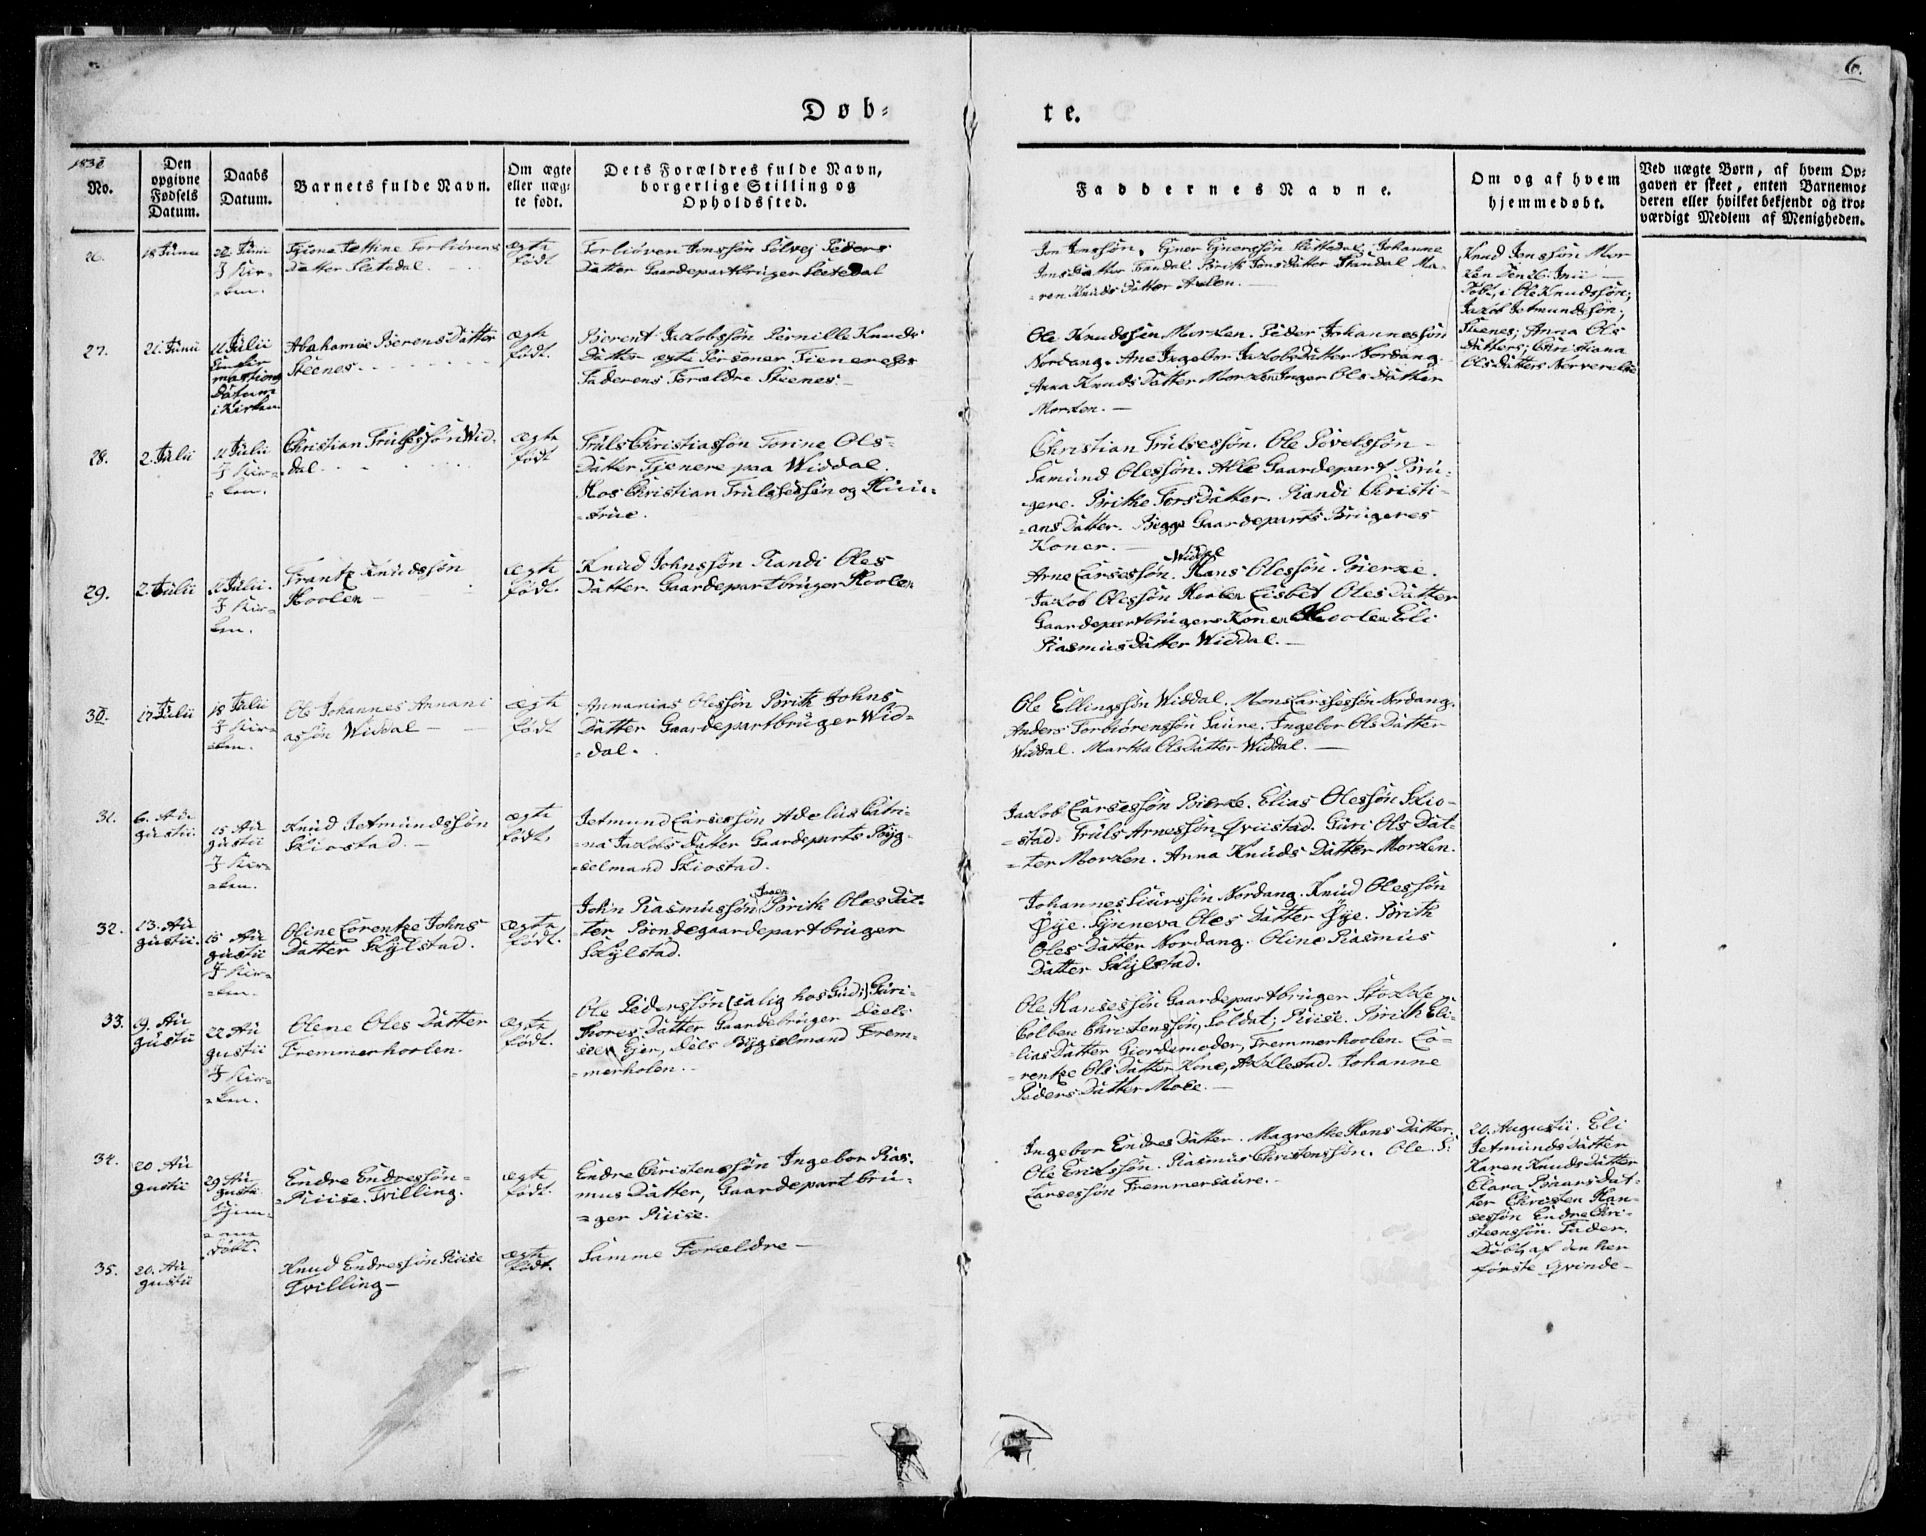 6.
Døb-
te.
1830
No.
Den
opgivne
Fødsels
Datum.
Daabs
Datum.
Barnets fulde Navn.
Om ægte
eller uæg-
te født.
Dets Forældres fulde Navn,
borgerlige Stilling og
Opholdssted.
Faddernes Navne.
Om og af hvem
hjemmedøbt.
Ved uægte Børn, af hvem Op-
gaven er skeet, enten Barnemo-
deren eller hvilket bekjendt og tro-
værdigt Medlem af Menigheden.
26.
18 Junii
Junii
J Kir-
-ken.
Datter
ægte
født
Torbiøren Jonssøn Sølvej Peders
Datter Gaardepartbruger
Jon Jonssøn, Johanne
Jons Datter Brith Jons Datter Standal Ma-
-ren Knuds Datter
Knud Jonssøn Mor
ken den 26 Junii
Døbt, i Ole Knudssøn;
Jakob Jetmundssøn,
Steenes; Anna Ols
Datters; Christiana
Ols Datters
27.
21 Junii
11 Julii
Confir
mations
Datum
i Kirken
Berens Datter
Steenes
ægte
født.
Berent Jakobssøn Pernille Knuds
Datter ægte Personer Tienere hos
Faderens Forældre Steenes
Ole Knudssøn Morken. Peder Johannessøn
Nordang. Ane Ingebor Jakobs Datter Nordang.
Anna Knuds Datter Morken Inger Ols Datter
Morken.
28.
2 Julii
11 Julii
J Kir-
-ken.
Christian Trulssøn Wid-
-dal
ægte
født
Truls Christianssøn Torine Ols-
Datter Tjenere paa Widdal.
Hos Christian Trulssessøn og Huu-
-strue.
Christian Trulsessøn. Ole Povelssøn
Samund Olessøn. Alle Gaardepart Bru-
-gere. Brithe Tors Datter. Randi Christi-
-ans Datter. Begge Gaardeparts Brugeres
Koner.
29.
2 Julii
11 Julii.
J Kir-
ken.
Frantz Knudssøn
Hoolen
ægte
født.
Knud Johnssøn Randi Oles
Datter. Gaardepartbruger Hoolen
Widdal
Arne Larsessøn. Hans Olessøn Bierke.
Jakob Olessøn Lisbet Oles Datter
Gaardepartbrugers Kone Hoolen Eli
Rasmus Datter Widdal.
30.
17 Julii
18 Julii
J Kir-
-ken.
Ole Johannes Annani
assøn Widdal
ægte
født
Annanias Olessøn Brith Johns
Datter Gaardepartbruger Wid-
-dal.
Ole Ellingssøn Widdal. Mons Larssessøn Nordang.
Anders Torbiørenssøn Saure. Ingebor Ols Datter
Widdal. Martha Ols Datter Widdal.
31.
6. Au
gustii
15 Au
gustii
J Kir-
-ken.
Knud Jetmundssøn
Skiostad.
ægte
født.
Jetmund Larsessøn Adelus Catri-
-na Jakobs Datter Gaardeparts Byg-
-selmand Skiostad.
Jakob Larsessøn Bierke. Elias Olessøn Skio-
-stad. Truls Arnessøn Qviistad. Guri Ols Dat-
-ter Morken. Anna Knuds Datter Morken.
32.
13. Au
gustii.
15 Au
gustii
J Kir-
-ken.
Oline Lorentze Johns
Datter Skylstad.
ægte
født.
John Rasmussøn Brith Oles Dat-
ter Bondegaardepartbruger
Skylstad.
Johannes Siurssøn Nordang. Knud Olessøn
Øye. Synneva Oles Datter Øye. Brith
Oles Datter Nordang. Oline Rasmus
Datter Skylstad.
33.
19. Au
gustii
22 Au
gustii
J Kir-
-ken.
Olene Oles Datter
Fremmerhoolen.
ægte
født.
Ole Pederssøn (salig hos Gud;) Guri-
Thores Datter Gaardebruger Deels
Ejer, Dels Bygselmand Frem-
-merholen.
Ole Hansessøn Gaardepartbruger Stokke
Colben Christenssøn, Soldat; Riise. Brith Eli-
-lias Datter Giordemoder, Fremmerhoolen. Lo-
-rentze Ols Datter Kone, Aklestad. Johanne
Peders Datter Moe.
34.
20 Au
gustii
29 Au
gustii
Hjem-
me
døbt.
Endre Endressøn
Riise. Tvilling.
ægte
født.
Endre Christenssøn Ingebor Ras-
mus Datter, Gaardepartbru-
-ger Riise.
Ingebor Endres Datter. Magrethe Hans Datter.
Ole Erikssøn. Rasmus Christenssøn. Ole
Larsessøn Fremmersaure.
20. Augustii. Eli
Jetmunds Datter
Karen Knuds Datter
Clara Dat-
ter Christen Han-
sessøn Endre Chri-
steenssøn. Fader.
Døbt, af den her
første Qvinde
35.
20. Au
gustii
Knud Endressøn Riise
Tvilling
ægte
født.
Samme Forældre